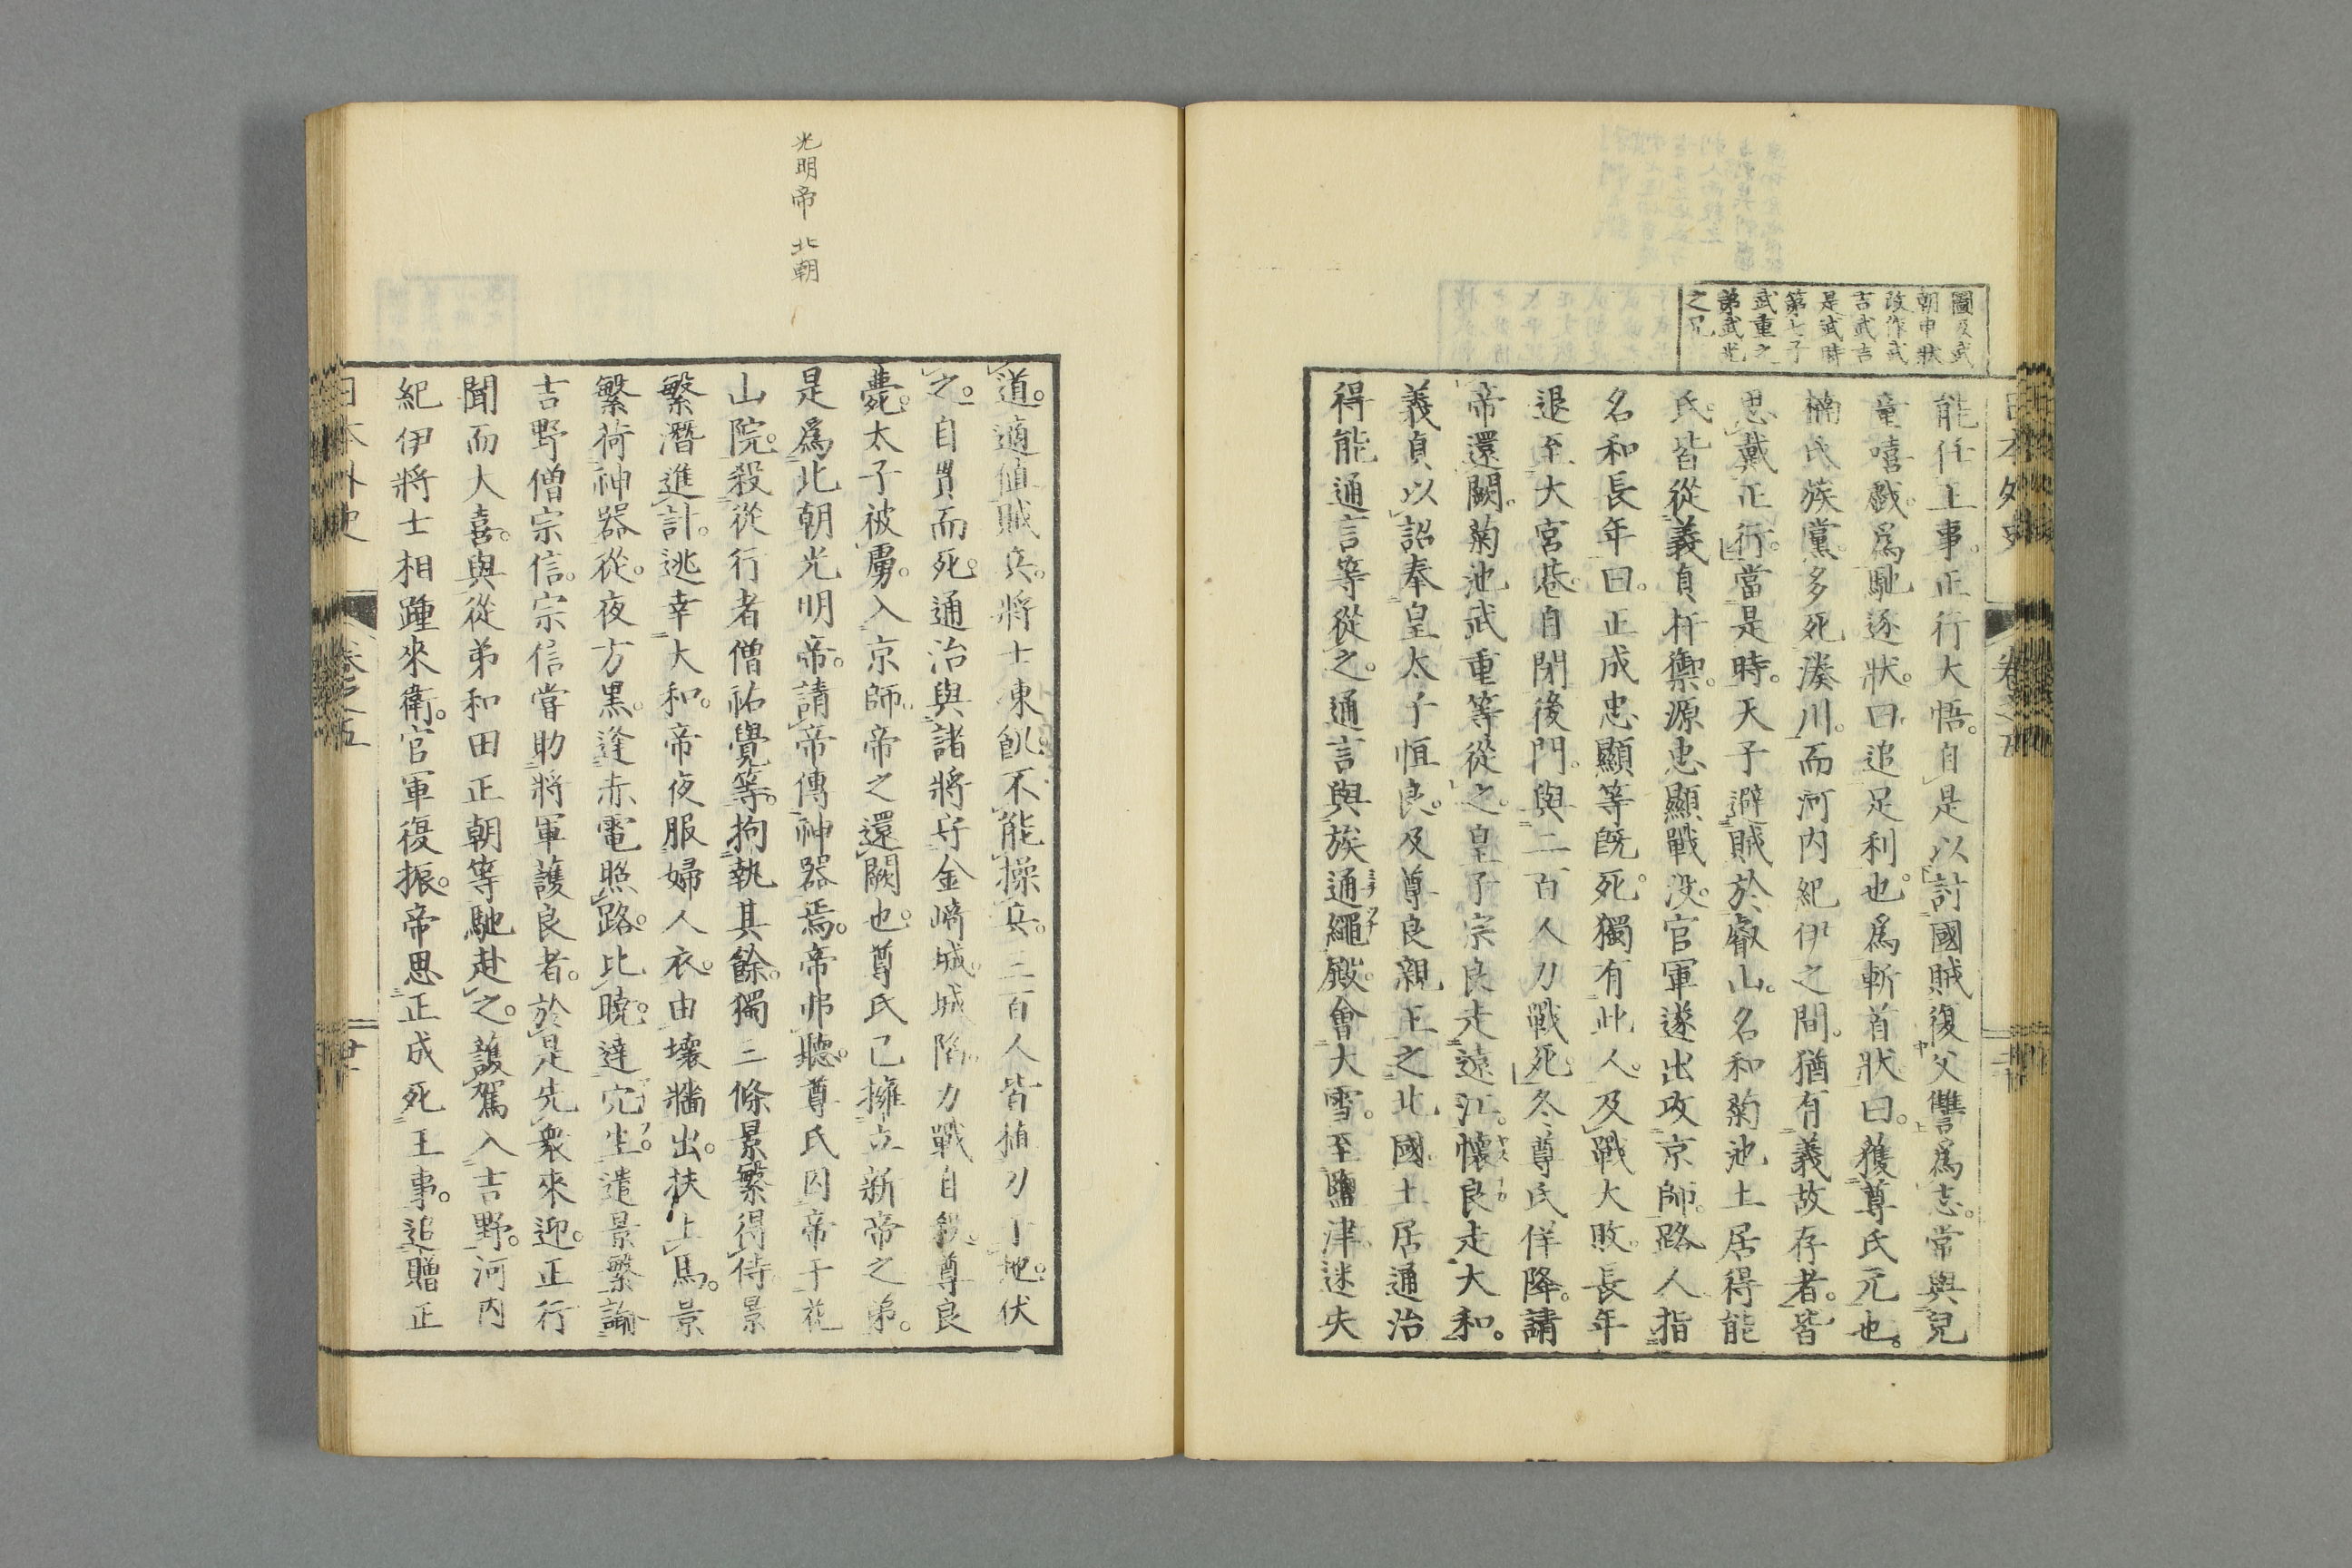 圖及武
朝申狀
改作武
吉武吉
是武時
第七子
武重之
弟武光
之兄
日本外史 卷之五
能任王事。正行大悟。自是以討國賊復父讐爲志。常與兒
童嬉戲。爲馳逐狀。曰追足利也。爲斬首狀。曰獲尊氏元也。
楠氏族黨。多死湊川。而河内紀伊之間。猶有義故存者。皆
思戴正行。當是時。天子避賊於叡山。名和菊池土居得能
氏。皆從義貞扞禦。源忠顯戰没。官軍遂出攻京師。路人指
名和長年曰。正成忠顯等既死。獨有此人。及戰大敗。長年
退至大宮巷。自閉後門。與二百人力戰死。冬尊氏佯降。請
帝還闕。菊池武重等從之。皇子宗良走遠江。懷良走大和。
義貞以詔奉皇太子恒良。及尊良親王之北國。土居通治
得能通言等從之。通言與族通繩殿。會大雪。至鹽津。迷失
光明帝 北朝
道。適値賊兵。將士凍飢。不能操兵。三百人皆植刀于地。伏
之。自貫而死。通治與諸將守金崎城。城陷。力戰自殺。尊良
薨。太子被虜。入京師。帝之還闕也。尊氏已擁立新帝之弟。
是爲北朝光明帝。請帝傳神器焉。帝弗聽。尊氏囚帝于花
山院。殺從行者僧祐覺等。拘執其餘。獨三條景繁得侍景
繁潛進計。逃幸大和。帝夜服婦人衣。由壞牆出。扶上馬。景
繁荷神器從。夜方黑。逢赤電照路。比曉。達穴生。遣景繁諭
吉野僧宗信。宗信嘗助將軍護良者。於是先衆來迎。正行
聞而大喜。與從弟和田正朝等馳赴之。護駕入吉野。河内
紀伊將士相踵來衛。官軍復振。帝思正成死王事。追贈正
日本外史 卷之五 廿一